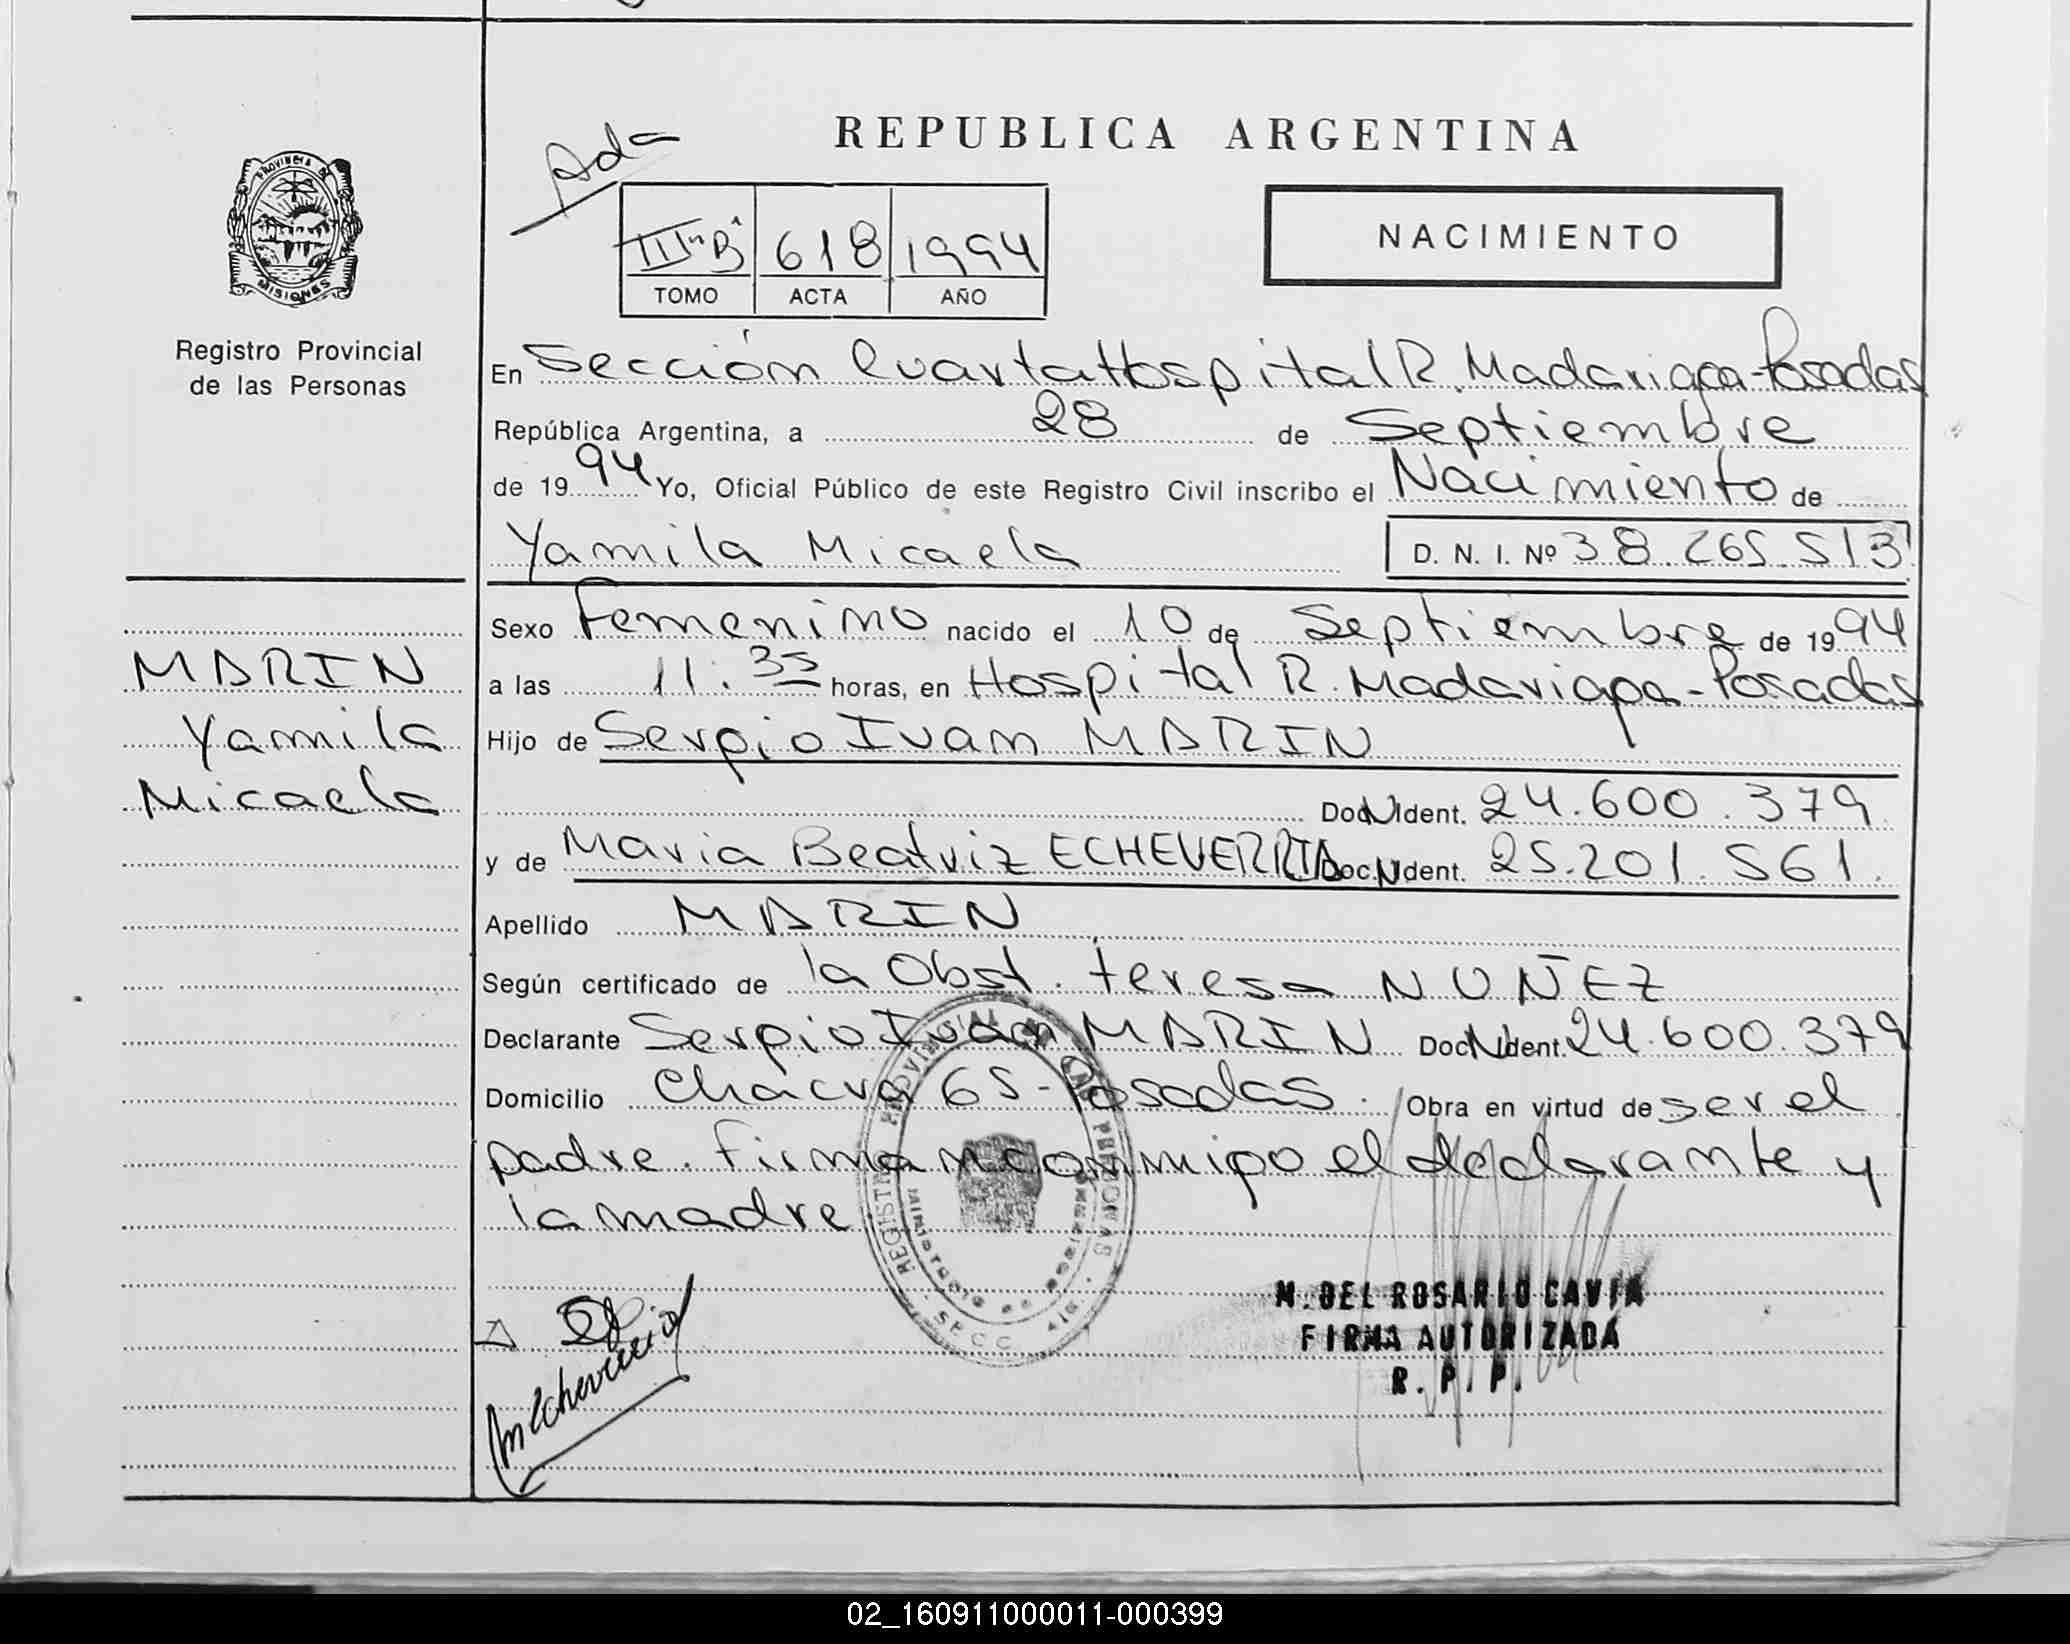 REPUBLICA ARGENTINA
Ada
PROVINCIA DE
MISIONES
III "B"
618
1994
TOMO
ACTA
AÑO
NACIMIENTO
Registro Provincial
de las Personas
En Sección Cuarta Hospital R. Madariaga - Posadas
República Argentina, a 28 de Septiembre
de 1994 Yo, Oficial Público de este Registro Civil inscribo el Nacimiento de
Yamila Micaela D. N. I. Nº 38.265.513
Sexo Femenino nacido el 10 de Septiembre de 1994
a las 11:35 horas, en Hospital R. Madariaga - Posadas
Hijo de Sergio Ivan MARIN
Doc N Ident. 24.600.379
y de Maria Beatriz ECHEVERRIA Doc. N Ident. 25.201.561.
Apellido MARIN
Según certificado de la Obst. Teresa NUÑEZ
Declarante Sergio Ivan MARIN Doc N Ident. 24.600.379
Domicilio Chacra 65 - Posadas. Obra en virtud de ser el
padre. Firman conmigo el declarante y
la madre
MARIN
Yamila
Micaela
REGISTRO PROVINCIAL DE LAS PERSONAS
MINISTERIO DE GOBIERNO
SECC. 4ta.
M. DEL ROSARIO CAVIA
FIRMA AUTORIZADA
R. P. P.
02_160911000011-000399